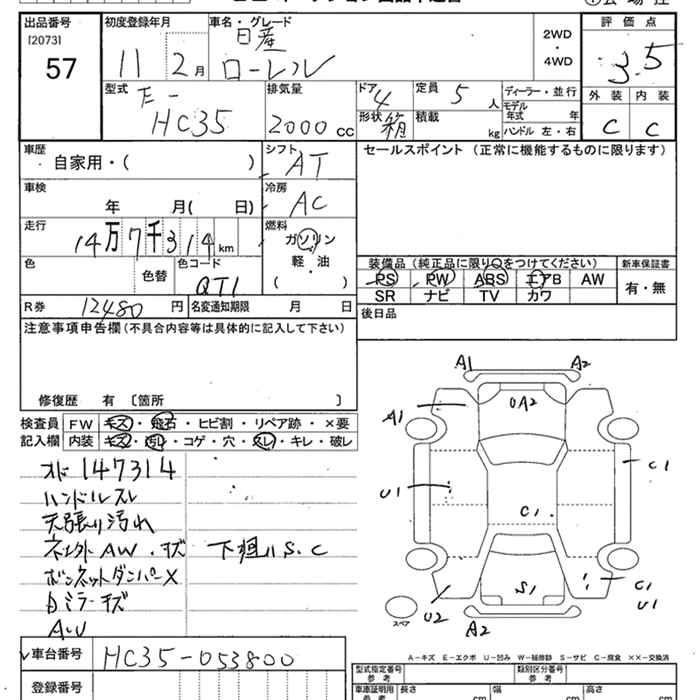 出品番号 初度登録年月 車名・グレード 評価点
[2073]
57 11年 2月 日産 ローレル 2WD・4WD 3.5
型式 E-HC35 排気量 2000cc ドア 4 定員 5人 ディーラー・並行 外装 内装
形状 箱 積載 kg モデル年式 年 C C
ハンドル 左・右
車歴 シフト AT セールスポイント (正常に機能するものに限ります)
自家用・( )
車検 冷房 AC
年 月( 日)
走行 燃料
14万7千314km ガソリン
軽・油
( )
色 色替 色コード QT1
装備品(純正品に限り○をつけてください) 新車保証書
PS PW ABS エアB AW 有・無
SR ナビ TV カワ
R券 12480円 名変通知期限 月 日
後日品
注意事項申告欄(不具合内容等は具体的に記入して下さい)
修復歴 有 〔箇所 〕
検査員 FW キズ・飛石・ヒビ割・リペア跡・×要
記入欄 内装 キズ・汚れ・コゲ・穴・スレ・キレ・破レ
オド 147314
ハンドルスレ
天張り汚れ
ネ土外AW・キズ 下担11 S.C
ボンネットダンパーX
白ミラーキズ
A1 A2
A1 UA2
U1 C1 C1
S1 C1
U2 U1
スペア A2
A−キズ E−エクボ U−凹み W−補修跡 S−サビ C−腐食 ××−交換済
車台番号 HC35-053800
型式指定番号 参考 類別区分番号 参考
登録番号
車庫証明用 参考 長さ cm 幅 cm 高さ cm